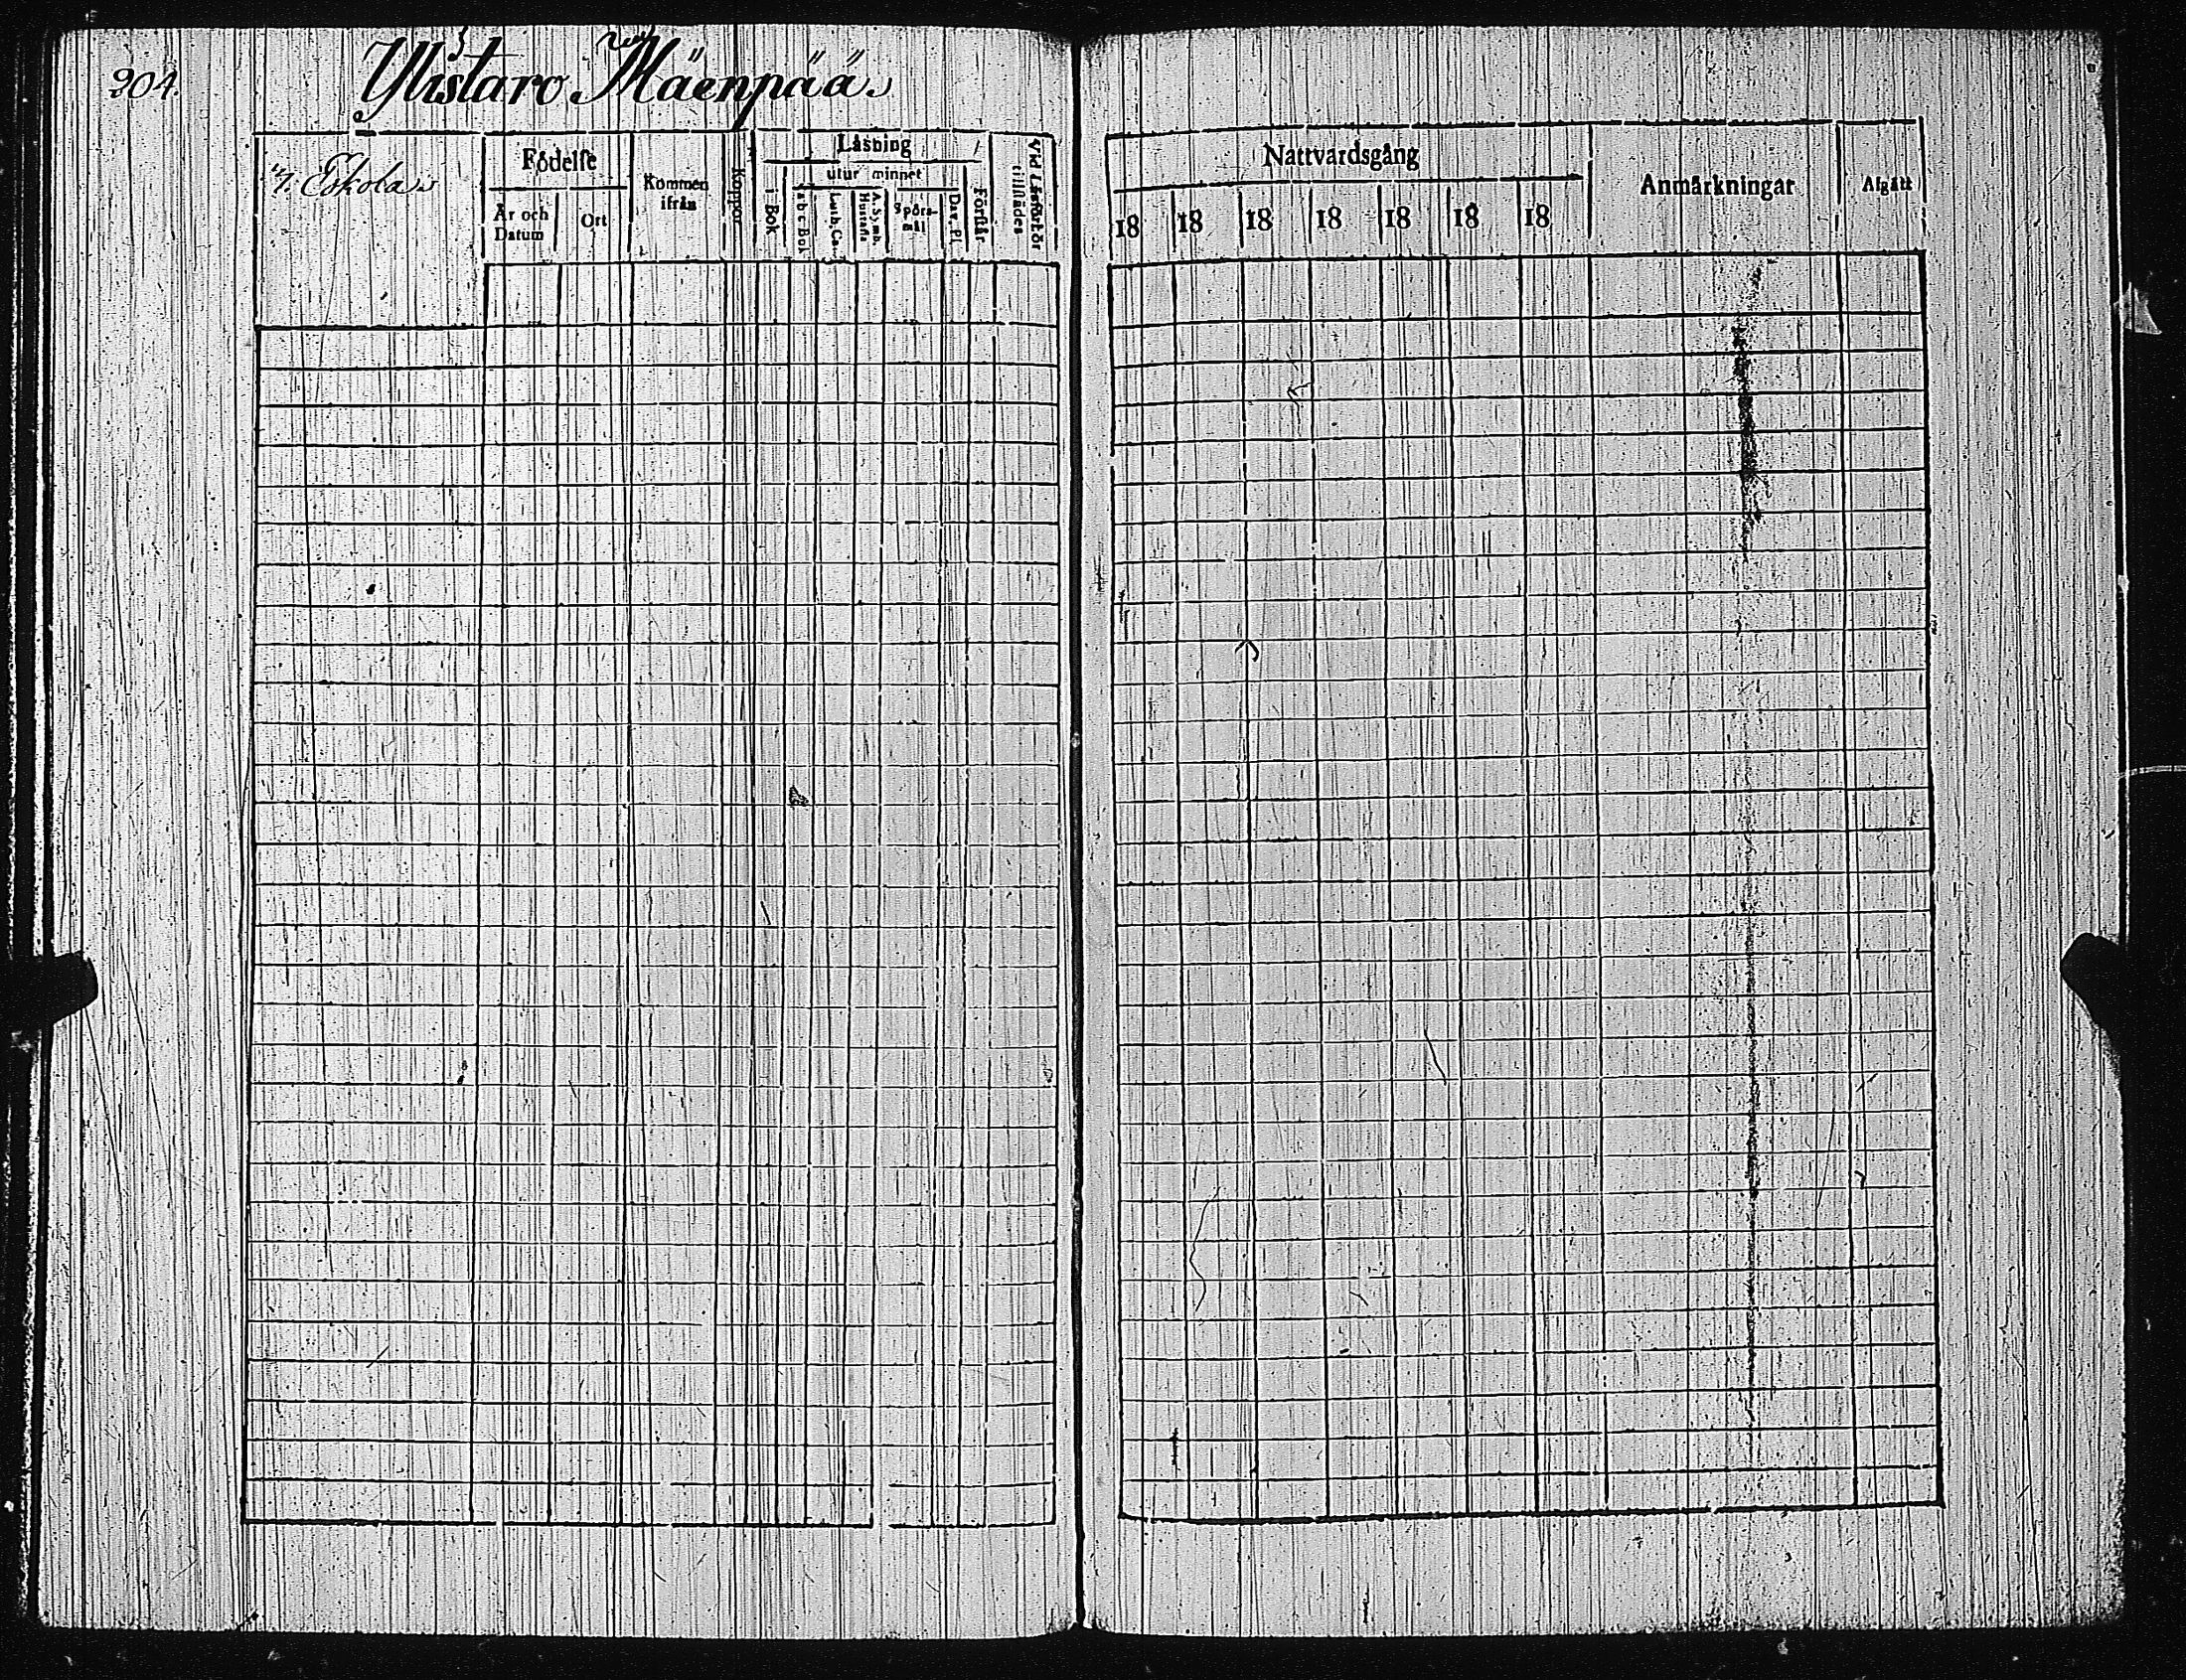 204.
Ylistaro Mäenpää
Eskola
Födelse
År och Datum
Ort
Kommen ifrån
Koppor
Läsning
utur minnet
i Bok
a b c Bok
Luth. Ca.
A. Symb. Hustafla
Spörs-mål
Dav. Pl.
Förstår
Vid Läsförhör tillstädes
Nattvardsgång
18 18 18 18 18 18 18
Anmärkningar
Afgått